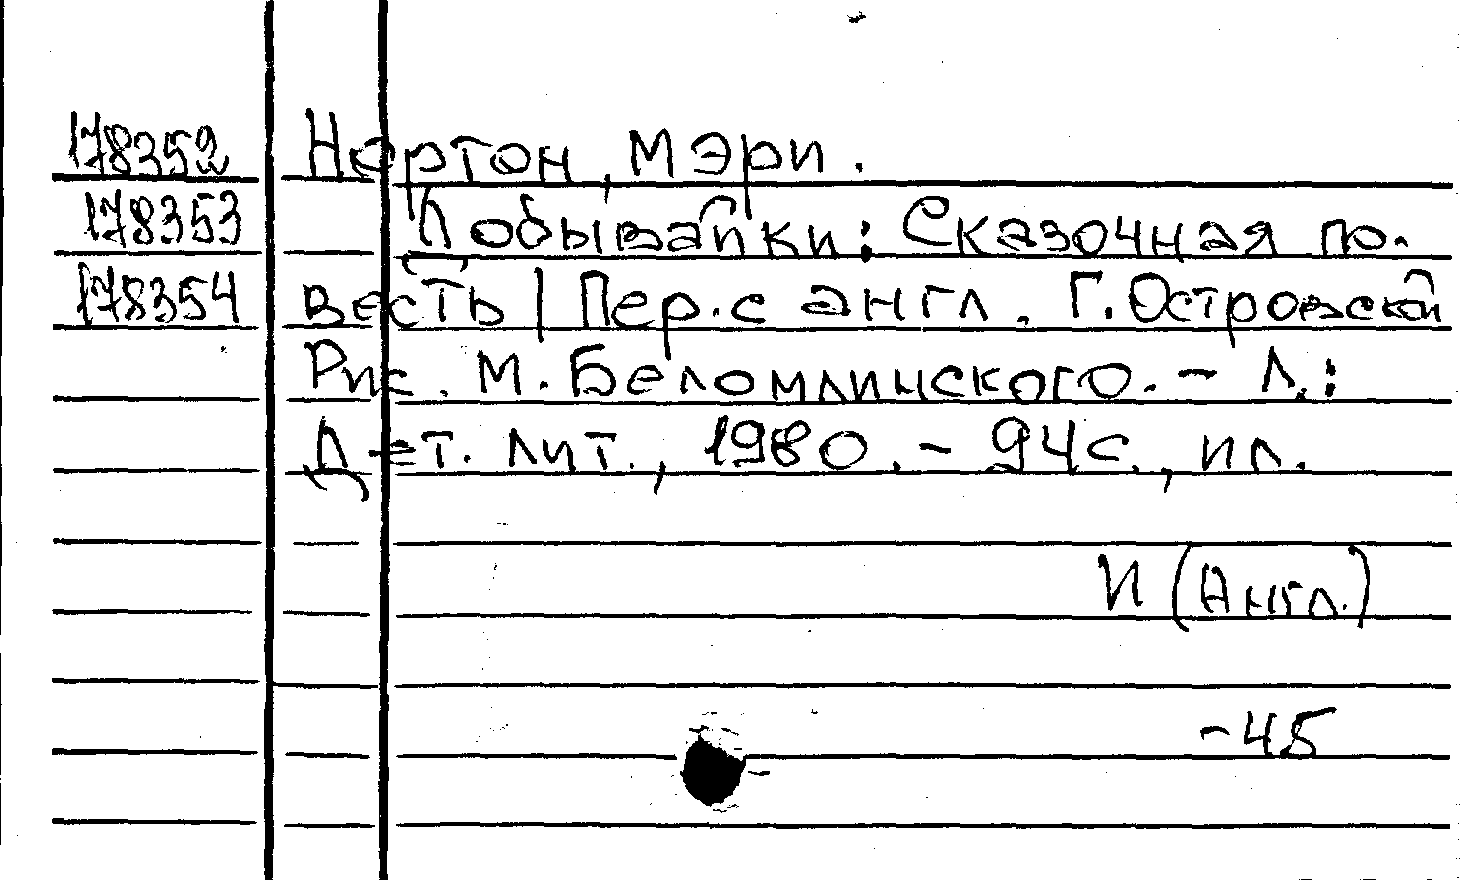 178352 Нортон, Мэри.
178353 Добывайки: Сказочная по-
178354 весть / Пер. с англ. Г. Островской
Рис. М. Беломлинского. - Л.:
Дет. лит., 1980. - 94 с., ил.
И (Англ.)
-45